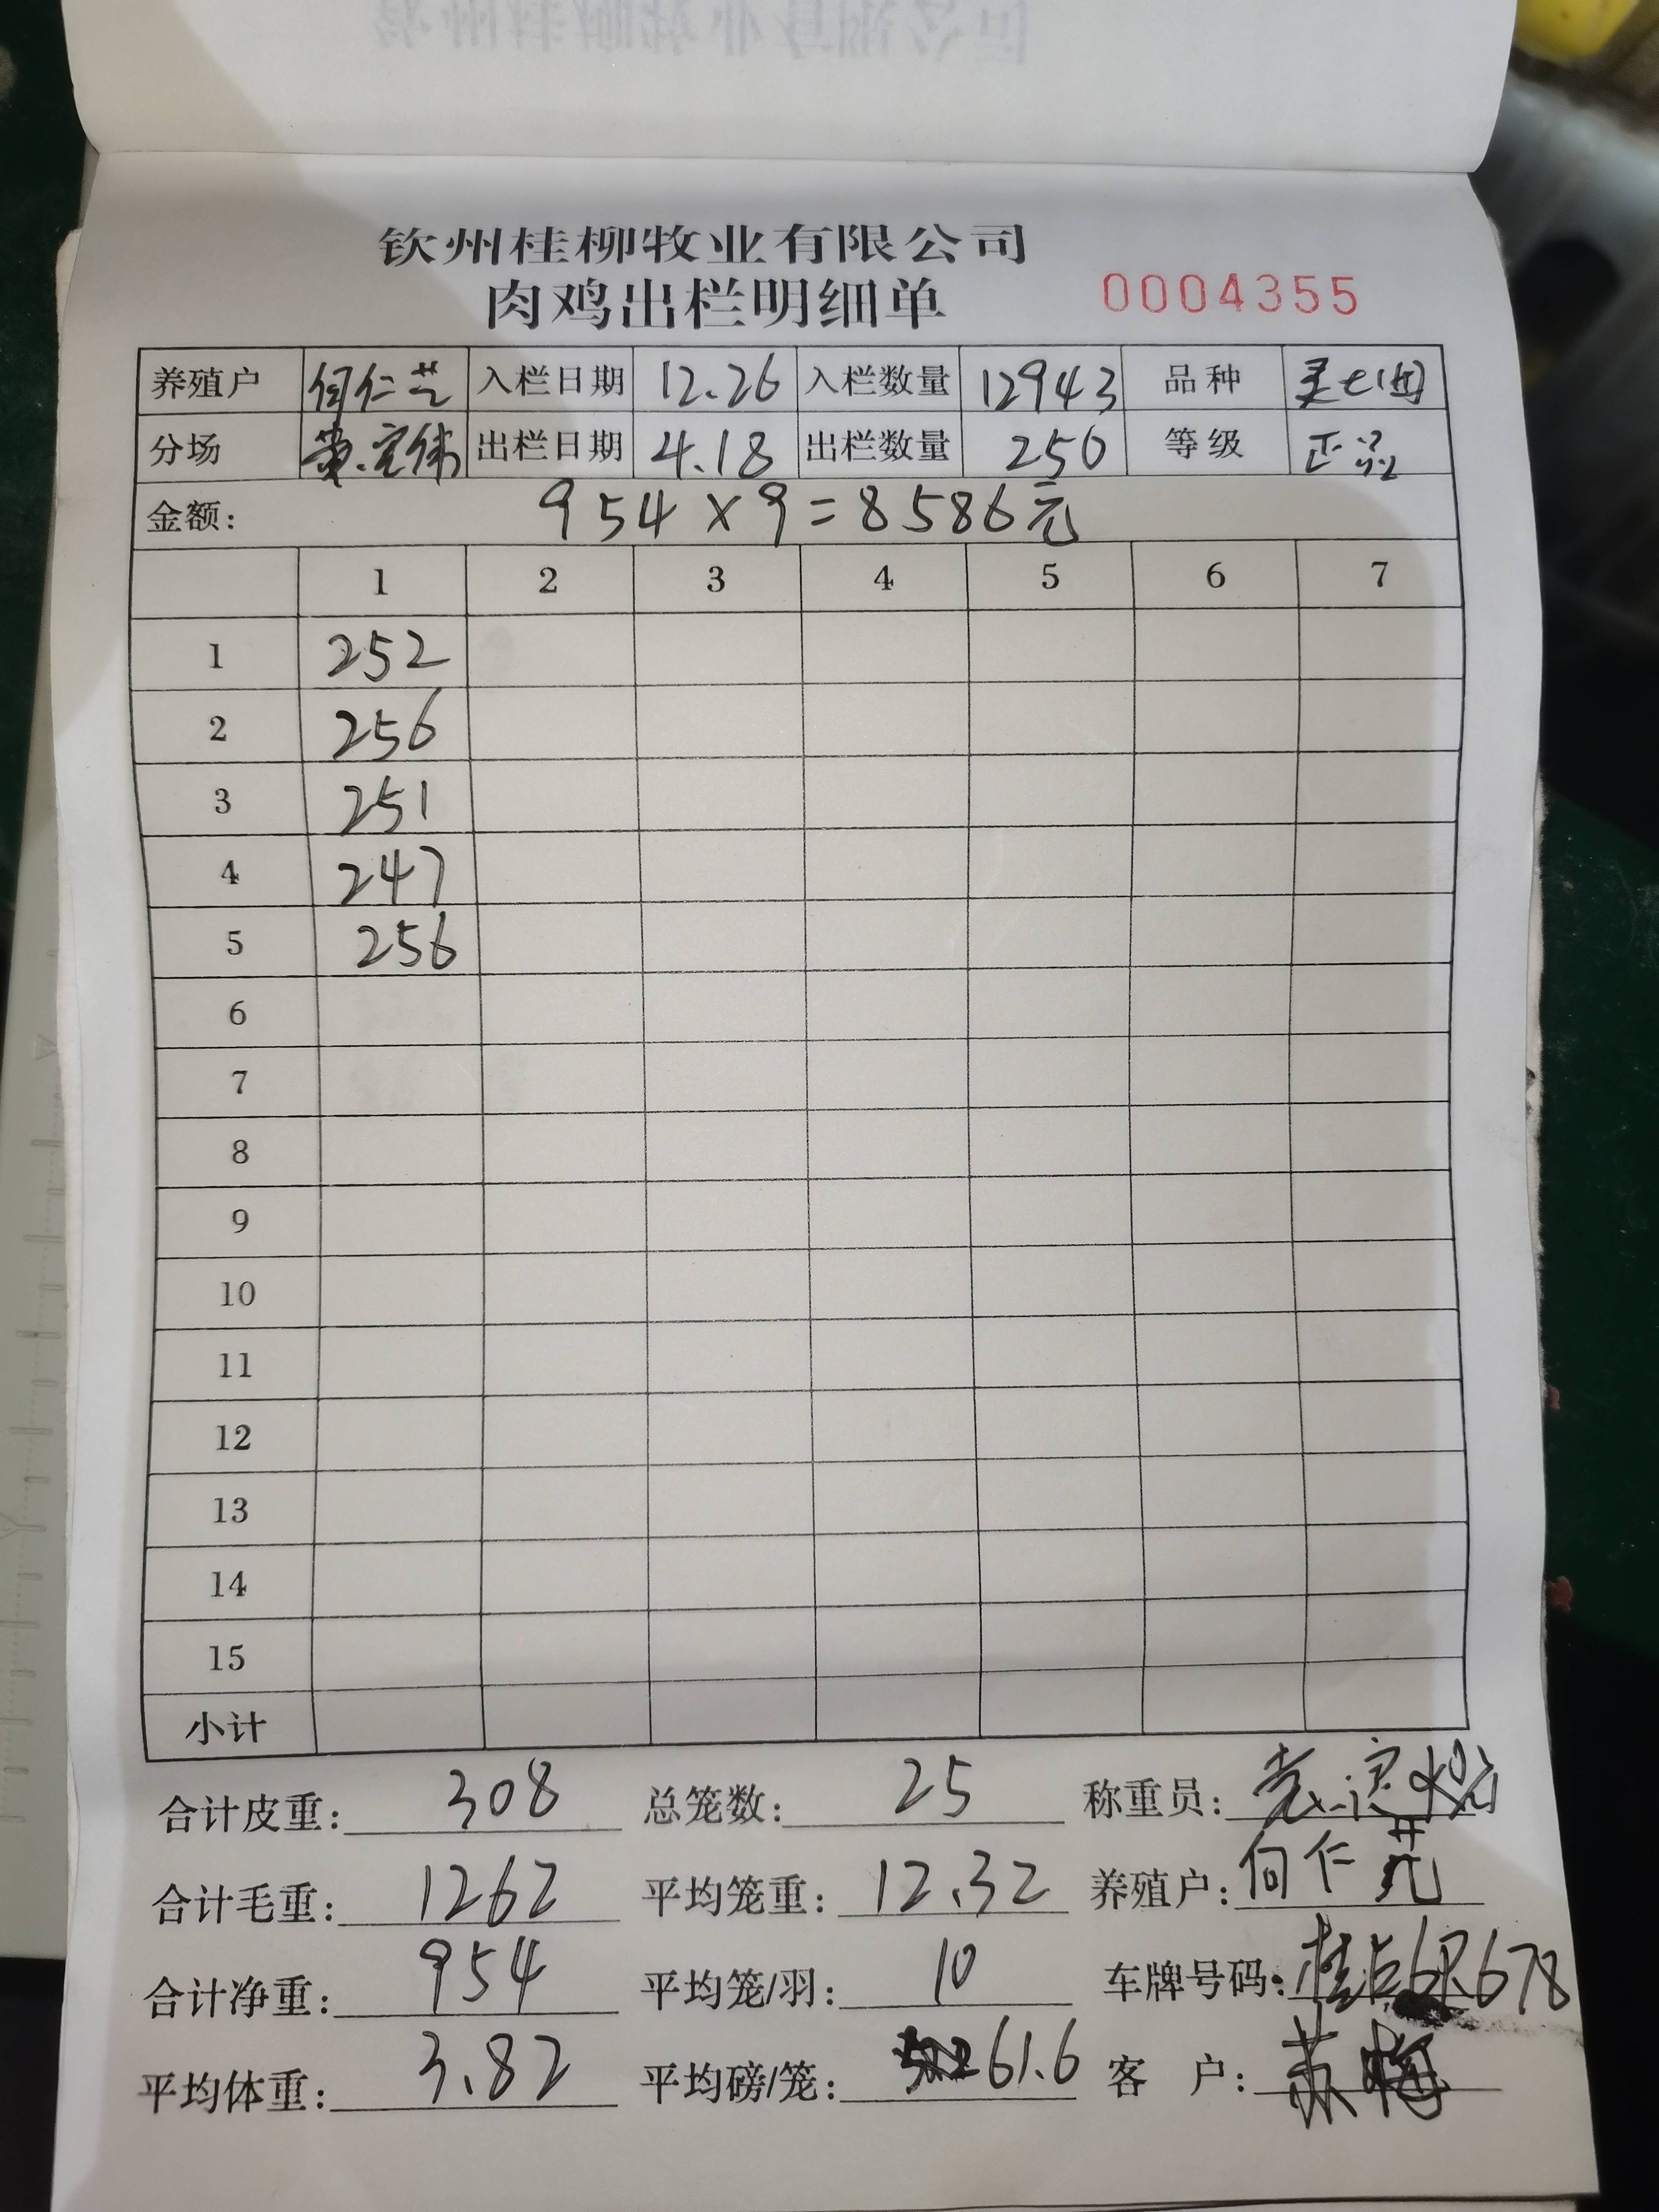 钦州桂柳牧业有限公司
肉鸡出栏明细单 0004355
养殖户 何仁芝 入栏日期 12.26 入栏数量 12943 品种
分场 出栏日期 4.18 出栏数量 250 等级 正品
金额: 954×9=8586元
1 2 3 4 5 6 7
1 252
2 256
3 251
4 247
5 256
6
7
8
9
10
11
12
13
14
15
小计
合计皮重: 308 总笼数: 25 称重员:
合计毛重: 1262 平均笼重: 12.32 养殖户: 何仁
合计净重: 954 平均笼/羽: 10 车牌号码:
平均体重: 3.82 平均磅/笼: 61.6 客户: 苏梅